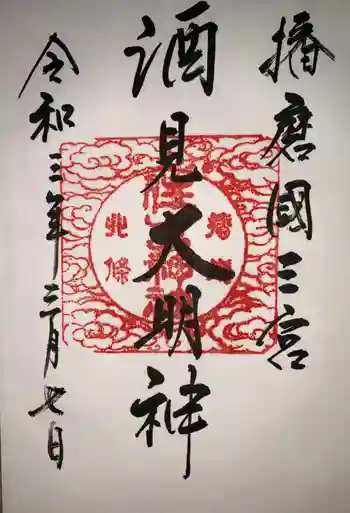 播磨國三宮
酒見大明神
令和三年三月七日
播磨
北條
住吉神社